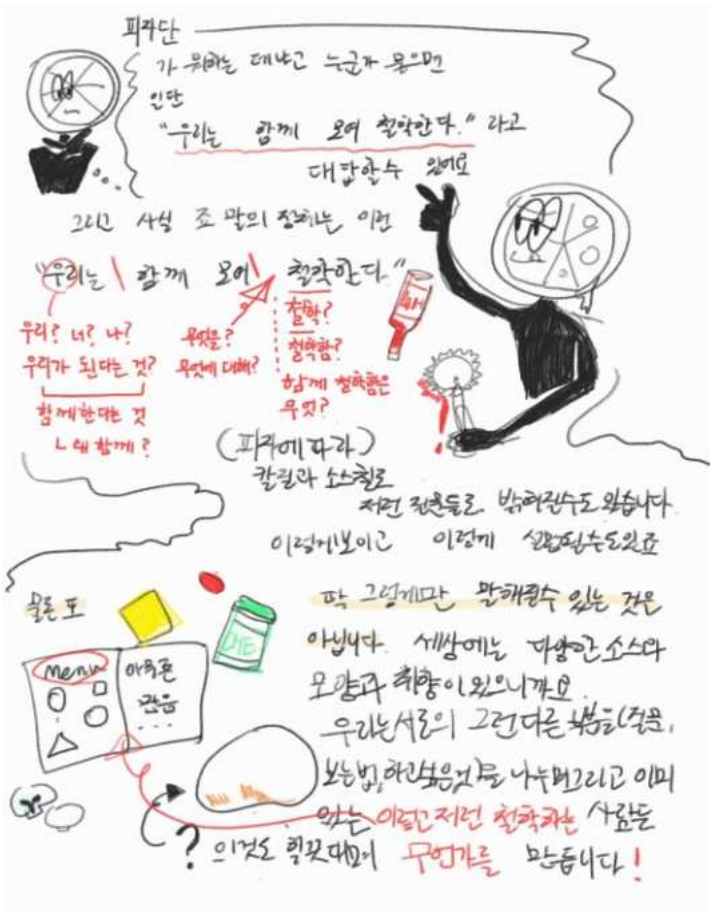 피자단
가 뭐하는 데냐고 누군가 물으면
일단
"우리는 함께 모여 철학한다." 라고
대답할수 있어요
그리고 사실 조 말의 정체는 이런
"우리는 \ 함께 모여 \ 철학한다."
우리? 너? 나?
우리가 된다는 것?
함께한다는 것
ㄴ 왜 함께?
무엇을?
무엇에 대해?
철학?
철학함?
함께 철학함은
무엇?
(피자에 따라)
칼질과 소스칠로
저런 질문들로 밝혀질수도 있습니다
이렇게보이고 이렇게 실험될수도있죠
물론 또
딱 그렇게만 말해질수 있는 것은
아닙니다. 세상에는 다양한 소스와
모양과 취향이 있으니까요
우리는서로의 그런다른 부분을(질문,
보는법,하고싶은것)를 나누며그리고 이미
있는 이렇고저런 철학하는 사람들
의것도 힐끗대며 무언가를 만듭니다!
menu